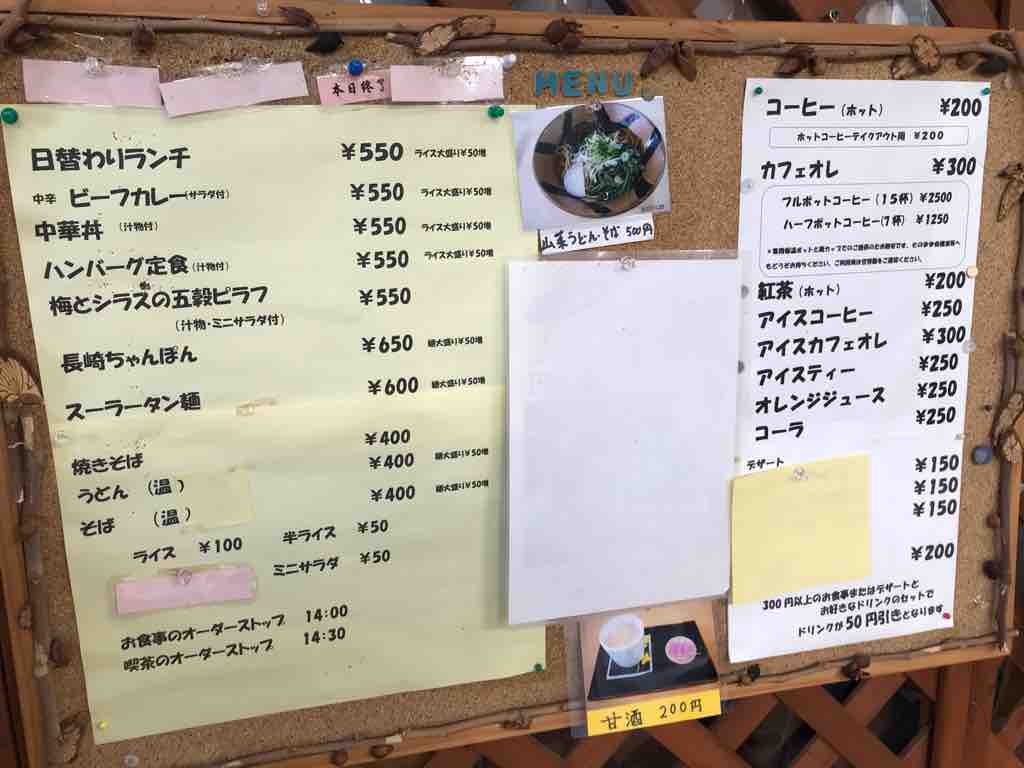 本日終了
MENU
日替わりランチ ¥550 ライス大盛り¥50増
中辛 ビーフカレー(サラダ付) ¥550 ライス大盛り¥50増
中華丼 (汁物付) ¥550 ライス大盛り¥50増
ハンバーグ定食(汁物付) ¥550 ライス大盛り¥50増
梅とシラスの五穀ピラフ ¥550
(汁物・ミニサラダ付)
長崎ちゃんぽん ¥650 麺大盛り¥50増
スーラータン麺 ¥600 麺大盛り¥50増
焼きそば ¥400
うどん (温) ¥400 麺大盛り¥50増
そば (温) ¥400 麺大盛り¥50増
ライス ¥100 半ライス ¥50
ミニサラダ ¥50
お食事のオーダーストップ 14:00
喫茶のオーダーストップ 14:30
山菜うどん・そば 500円
甘酒 200円
コーヒー(ホット) ¥200
ホットコーヒーテイクアウト用 ¥200
カフェオレ ¥300
フルポットコーヒー(15杯) ¥2500
ハーフポットコーヒー(7杯) ¥1250
紅茶(ホット) ¥200
アイスコーヒー ¥250
アイスカフェオレ ¥300
アイスティー ¥250
オレンジジュース ¥250
コーラ ¥250
デザート
¥150
¥150
¥150
¥200
300円以上のお食事またはデザートと
お好きなドリンクのセットで
ドリンクが50円引きとなります